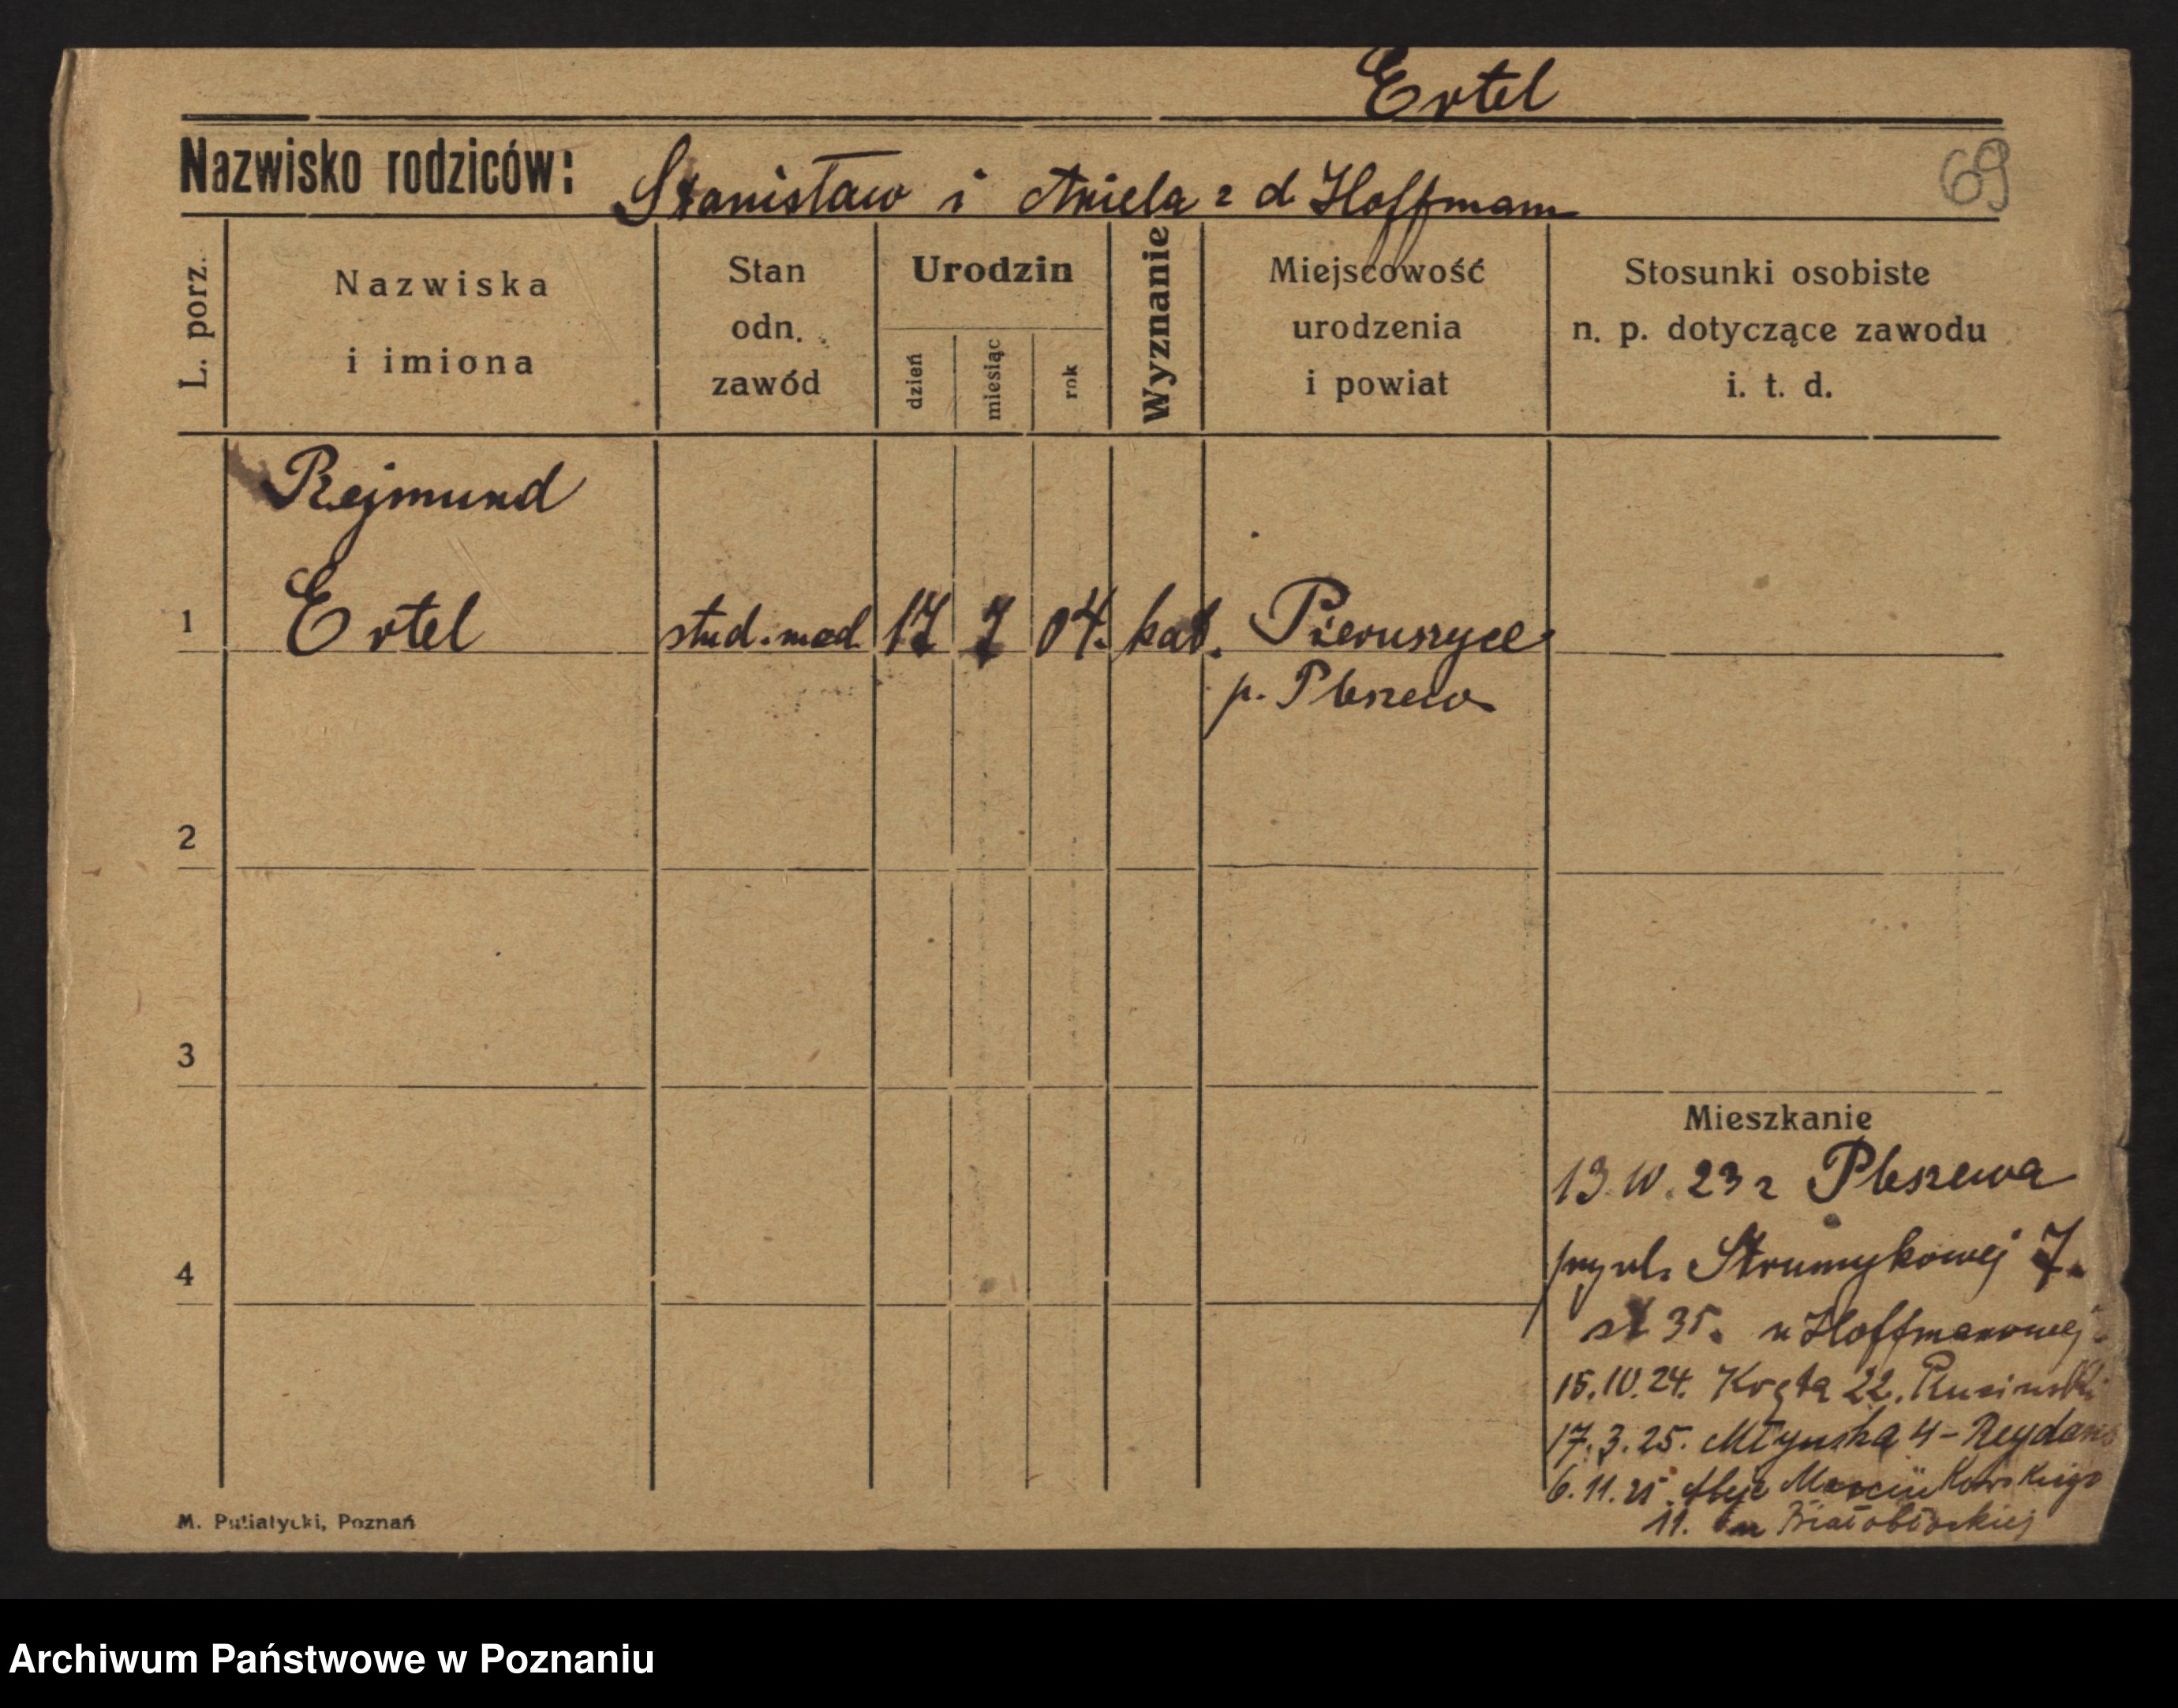 Ertel
Nazwisko rodziców: Stanisław i Aniela z d Hoffmann
69
L. porz.
Nazwiska
i imiona
Stan
odn.
zawód
Urodzin
dzień
miesiąc
rok
Wyznanie
Miejscowość
urodzenia
i powiat
Stosunki osobiste
n. p. dotyczące zawodu
i. t. d.
Rejmund
1 Ertel stud. med 17 7 04. kat. Pieruszyce
p. Pleszew
2
3
Mieszkanie
13.IV.23 z Pleszewa
4
przy ul. Strumykowej 7.
st 35. u Hoffmanowej.
15.IV.24. Kręta 22. Rusinski
17.3.25. Młyńska 4 -
6.11.25. Aleje Marcinkowskiego
11. Białobłockiej
M. Putiatycki, Poznań
Archiwum Państwowe w Poznaniu